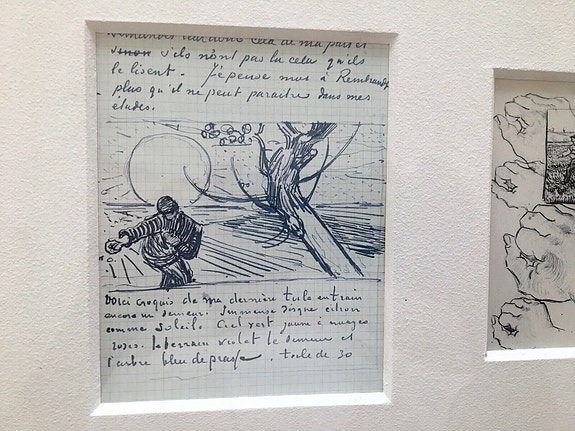 Demandes leur donc cela de ma part et
s'ils n'ont pas lu cela qu'ils
le lisent. Je pense moi à Rembrandt
plus qu'il ne peut paraitre dans mes
études.
Voici croquis de ma dernière toile en train
encore un semeur. Immense disque citron
comme soleil. Ciel vert jaune à nuages
roses. le terrain violet le semeur et
l'arbre bleu de prusse. toile de 30